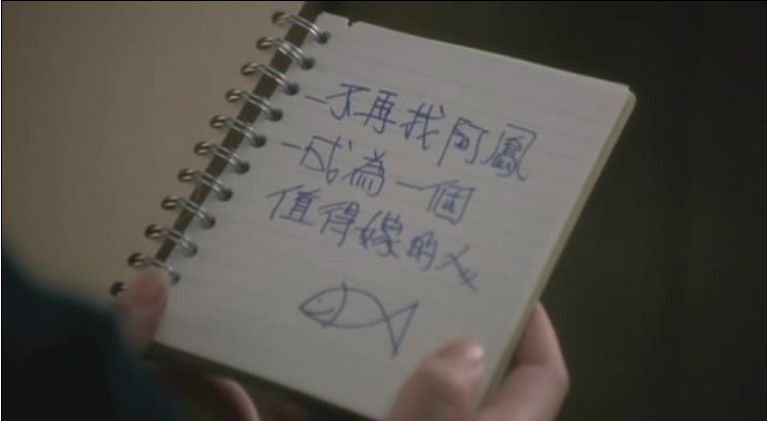 -不再找阿鳳
-成為一個
值得嫁的人